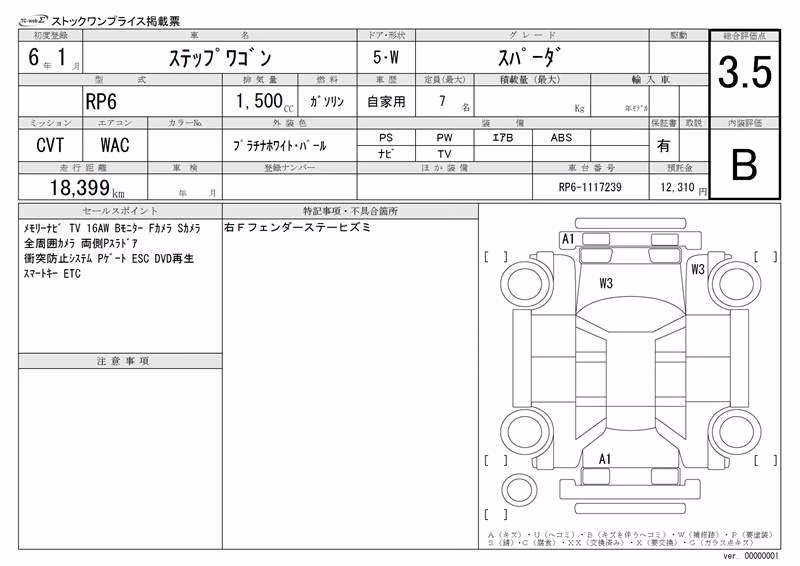 TC-webΣ ストックワンプライス掲載票
初度登録 車名 ドア・形状 グレード 駆動 総合評価点
6年 1月 ステップワゴン 5・W スパーダ 3.5
型式 排気量 燃料 車歴 定員(最大) 積載量(最大) 輸入車
RP6 1,500CC ガソリン 自家用 7名 Kg 年モデル
ミッション エアコン カラーNo. 外装色 装備 保証書 取説 内装評価
CVT WAC プラチナホワイト・パール PS PW エアB ABS 有 B
ナビ TV
走行距離 車検 登録ナンバー ほか装備 車台番号 預託金
18,399km 年 月 RP6-1117239 12,310円
セールスポイント
メモリーナビ TV 16AW Bモニター Fカメラ Sカメラ
全周囲カメラ 両側Pスラドア
衝突防止システム Pゲート ESC DVD再生
スマートキー ETC
注意事項
特記事項・不具合箇所
右Fフェンダーステーヒズミ
A1
W3
W3
[ ] [ ]
A1
[ ] [ ]
[ ]
A(キズ)・U(ヘコミ)・B(キズを伴うヘコミ)・W(補修跡)・P(要塗装)
S(錆)・C(腐食)・XX(交換済み)・X(要交換)・G(ガラス点キズ)
ver. 00000001